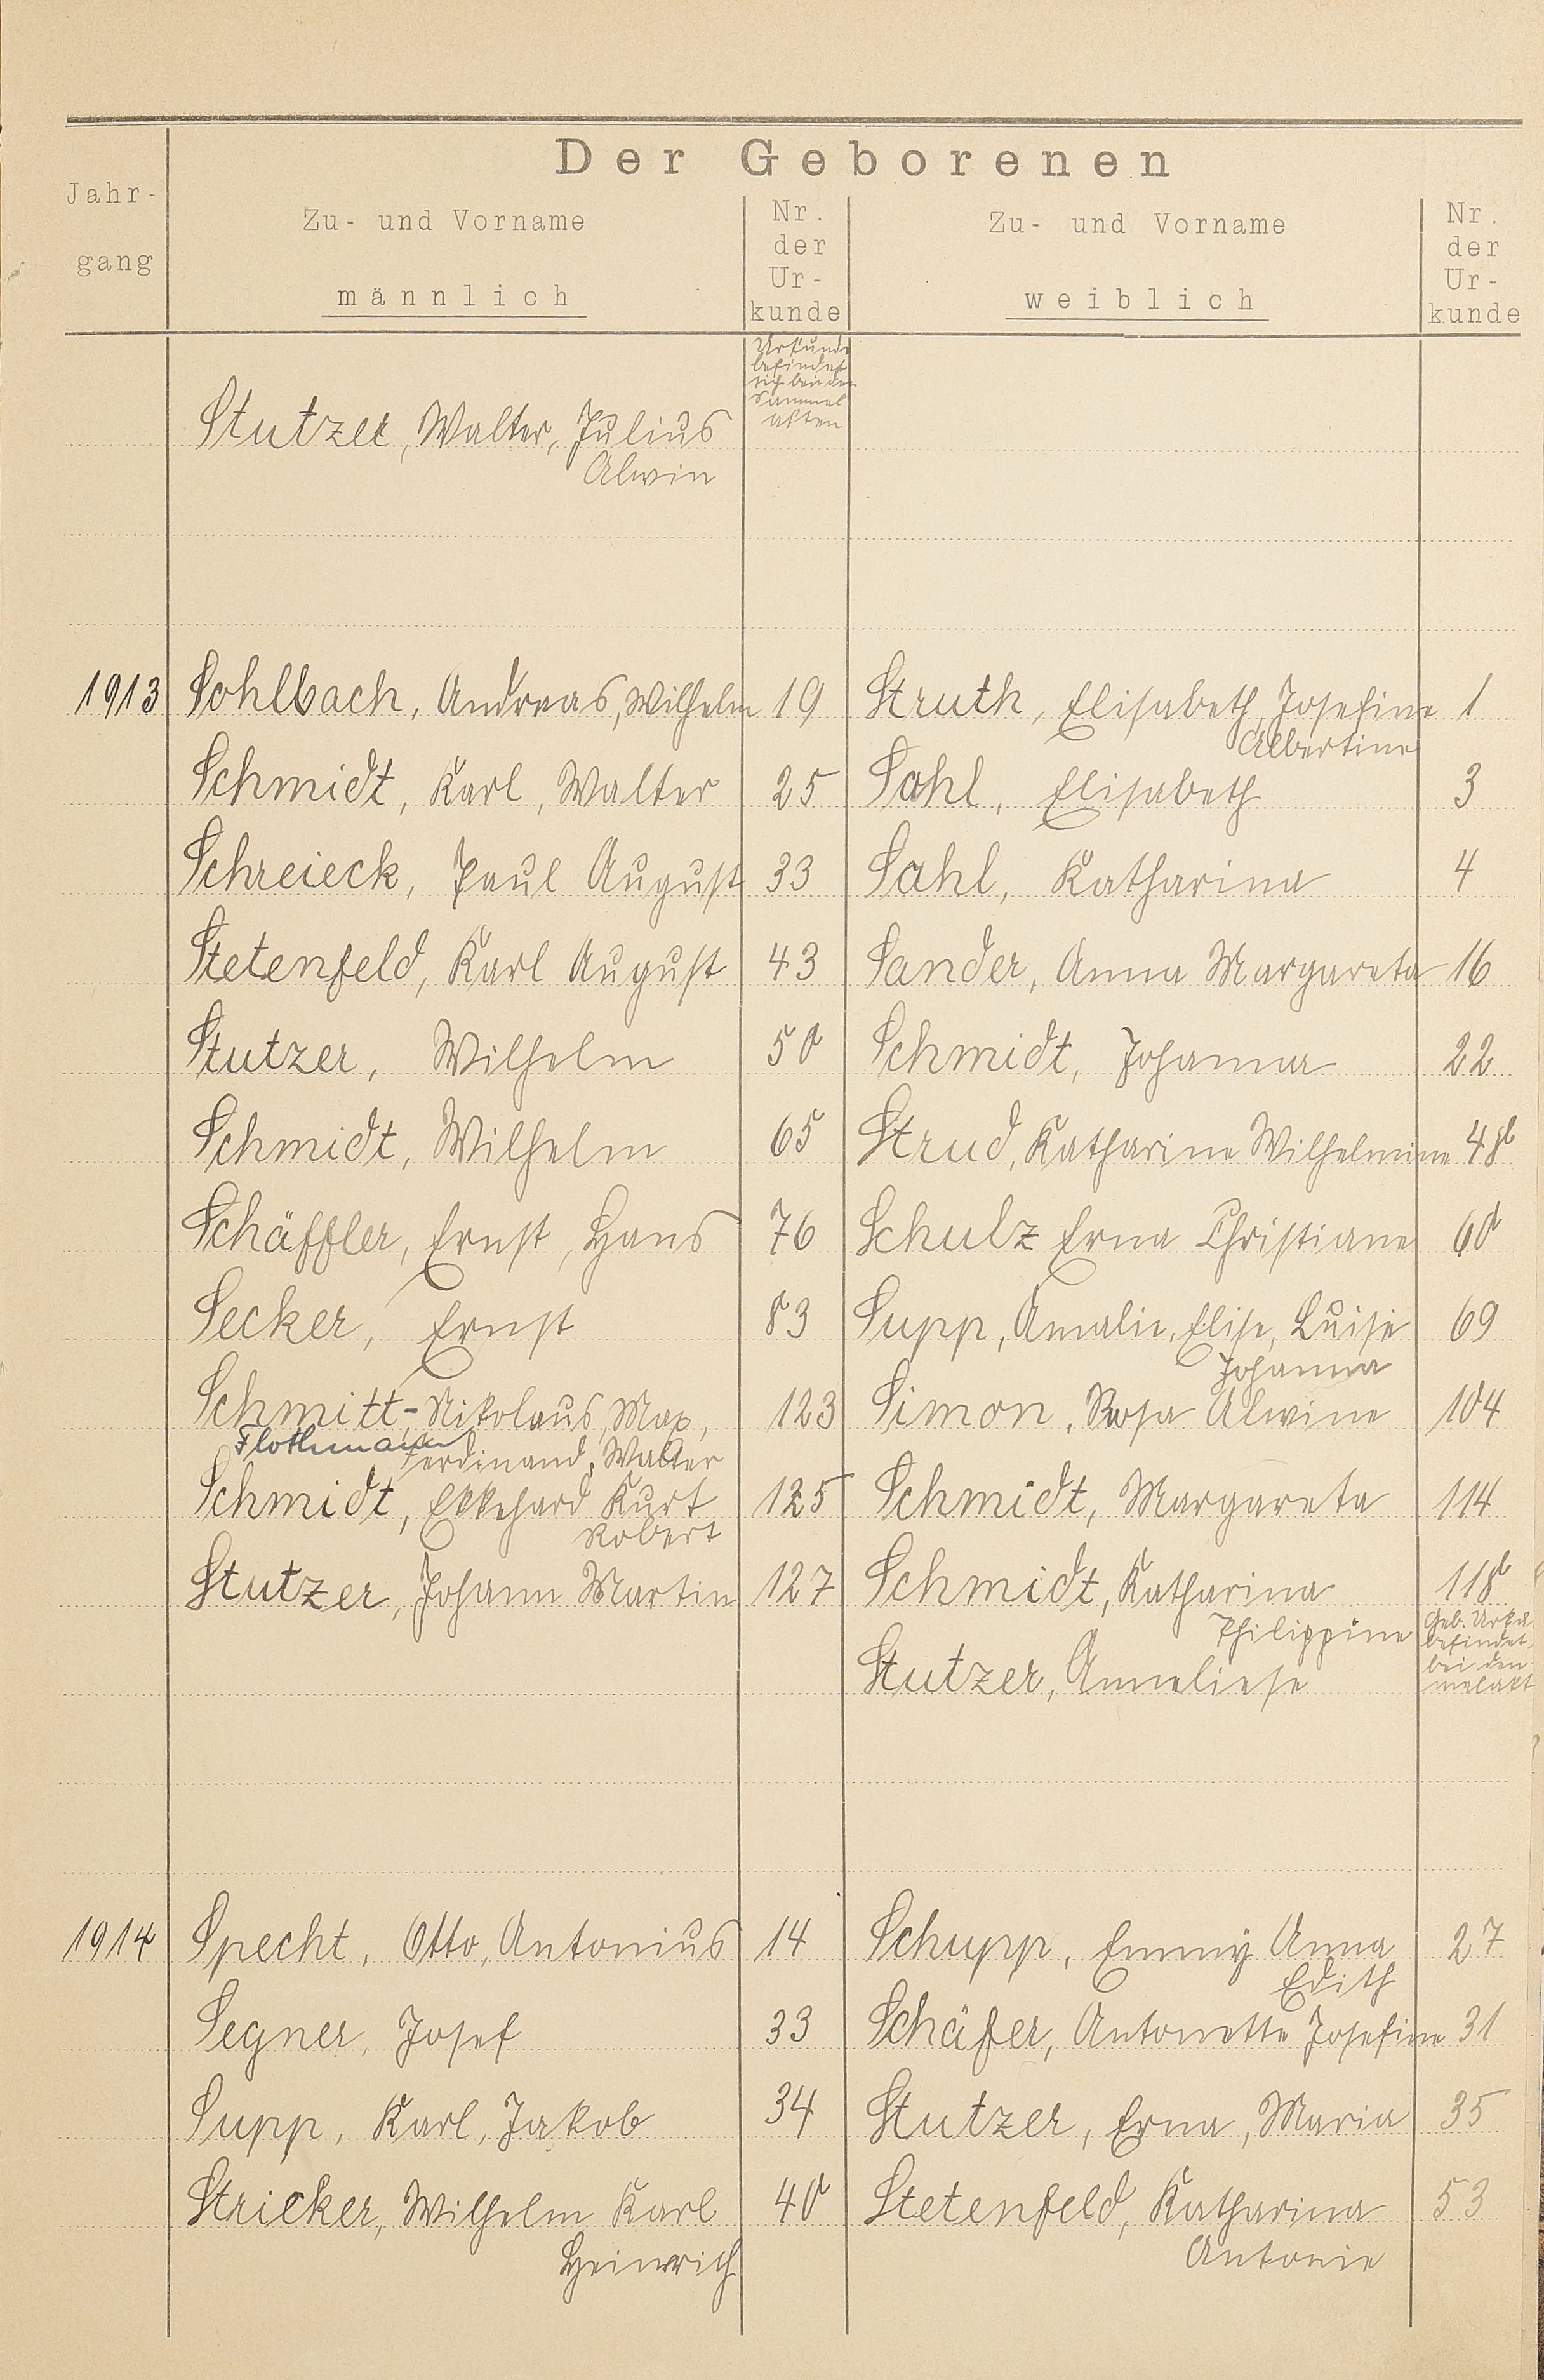 Der Geborenen
Jahr-
gang
Zu- und Vorname
männlich
Nr.
der
Ur-
kunde
Zu- und Vorname
weiblich
Nr.
der
Ur-
kunde
Urkunde
befindet
sich bei den
Sammel
akten
Stutzer, Walter, Julius
Alwin
1913 Sohlbach, Andreas, Wilhelm 19 Struth, Elisabeth, Josefine 1
Albertine
Schmidt, Karl, Walter 25 Sahl, Elisabeth 3
Schreieck, Paul August 33 Sahl, Katharina 4
Stetenfeld, Karl August 43 Sander, Anna Margareta 16
Stutzer, Wilhelm 50 Schmidt, Johanna 22
Schmidt, Wilhelm 65 Strud, Katharine Wilhelmine 48
Schäffler, Ernst, Hans 76 Schulz Erna Christiane 60
Secker, Ernst 83 Supp, Amalie, Elise, Luise 69
Johanna
Schmitt-Nikolaus, Max, 123 Simon, Rosa Alwine 104
Flothmann Ferdinand, Walter
Schmidt, Ekkehard Kurt 125 Schmidt, Margareta 114
Robert
Stutzer, Johann Martin 127 Schmidt, Katharina 118
Philippine
Stutzer, Anneliese
Geb. Urkd.
befindet
bei den
melakt
1914 Specht, Otto, Antonius 14 Schupp, Emmy Anna 27
Edith
Segner, Josef 33 Schäfer, Antonette Josefine 31
Supp, Karl, Jakob 34 Stutzer, Erna, Maria 35
Stricker, Wilhelm Karl 40 Stetenfeld, Katharina 53
Heinrich Antonie